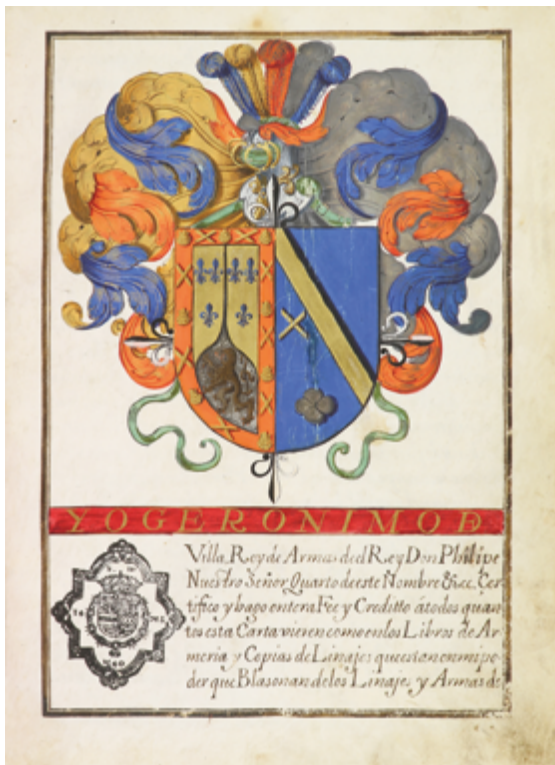 YO GERONIMO DE
Villa, Rey de Armas del Rey Don Philipe
Nuestro Señor Quarto de este Nombre &cc. Cer
tifico y hago entera Fee y Creditto â todos quan
tos esta Carta vieren como en los Libros de Ar
meria y Copias de Linajes que estan en mi po
der que Blasonan de los Linajes y Armas de